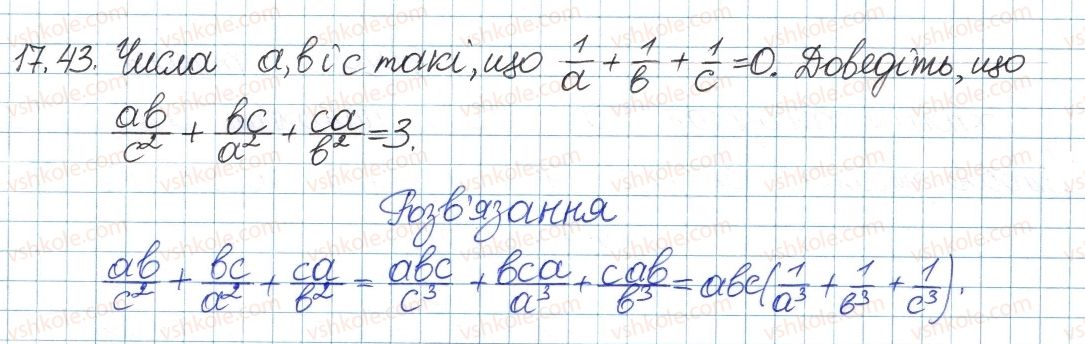 17.43. Числа a, b і c такі, що 1/a + 1/b + 1/c = 0. Доведіть, що
ab/c² + bc/a² + ca/b² = 3.
Розв'язання
ab/c² + bc/a² + ca/b² = abc/c³ + bca/a³ + cab/b³ = abc(1/a³ + 1/b³ + 1/c³).